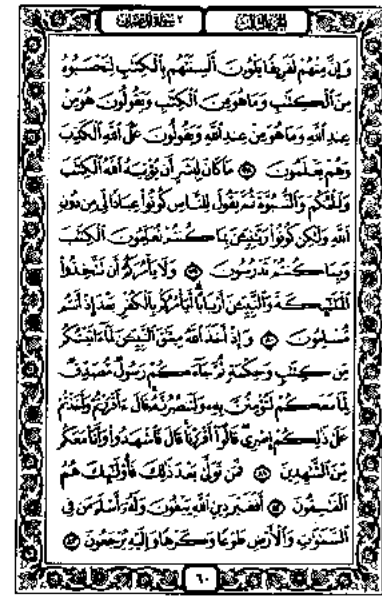 الجزء الثالث ٣ سورة آل عمران
وَإِنَّ مِنْهُمْ لَفَرِيقًا يَلْوُۥنَ أَلْسِنَتَهُم بِالْكِتَٰبِ لِتَحْسَبُوهُ
مِنَ ٱلْكِتَٰبِ وَمَا هُوَ مِنَ ٱلْكِتَٰبِ وَيَقُولُونَ هُوَ مِنْ
عِندِ ٱللَّهِ وَمَا هُوَ مِنْ عِندِ ٱللَّهِ وَيَقُولُونَ عَلَى ٱللَّهِ ٱلْكَذِبَ
وَهُمْ يَعْلَمُونَ ۝٧٨ مَا كَانَ لِبَشَرٍ أَن يُؤْتِيَهُ ٱللَّهُ ٱلْكِتَٰبَ
وَٱلْحُكْمَ وَٱلنُّبُوَّةَ ثُمَّ يَقُولَ لِلنَّاسِ كُونُوا۟ عِبَادًا لِّى مِن دُونِ
ٱللَّهِ وَلَٰكِن كُونُوا۟ رَبَّٰنِيِّۦنَ بِمَا كُنتُمْ تُعَلِّمُونَ ٱلْكِتَٰبَ
وَبِمَا كُنتُمْ تَدْرُسُونَ ۝٧٩ وَلَا يَأْمُرَكُمْ أَن تَتَّخِذُوا۟
ٱلْمَلَٰٓئِكَةَ وَٱلنَّبِيِّۦنَ أَرْبَابًا أَيَأْمُرُكُم بِٱلْكُفْرِ بَعْدَ إِذْ أَنتُم
مُّسْلِمُونَ ۝٨٠ وَإِذْ أَخَذَ ٱللَّهُ مِيثَٰقَ ٱلنَّبِيِّۦنَ لَمَآ ءَاتَيْتُكُم
مِّن كِتَٰبٍ وَحِكْمَةٍ ثُمَّ جَآءَكُمْ رَسُولٌ مُّصَدِّقٌ
لِّمَا مَعَكُمْ لَتُؤْمِنُنَّ بِهِۦ وَلَتَنصُرُنَّهُۥ قَالَ ءَأَقْرَرْتُمْ وَأَخَذْتُمْ
عَلَىٰ ذَٰلِكُمْ إِصْرِى قَالُوٓا۟ أَقْرَرْنَا قَالَ فَٱشْهَدُوا۟ وَأَنَا۠ مَعَكُم
مِّنَ ٱلشَّٰهِدِينَ ۝٨١ فَمَن تَوَلَّىٰ بَعْدَ ذَٰلِكَ فَأُو۟لَٰٓئِكَ هُمُ
ٱلْفَٰسِقُونَ ۝٨٢ أَفَغَيْرَ دِينِ ٱللَّهِ يَبْغُونَ وَلَهُۥٓ أَسْلَمَ مَن فِى
ٱلسَّمَٰوَٰتِ وَٱلْأَرْضِ طَوْعًا وَكَرْهًا وَإِلَيْهِ يُرْجَعُونَ ۝٨٣
٦٠